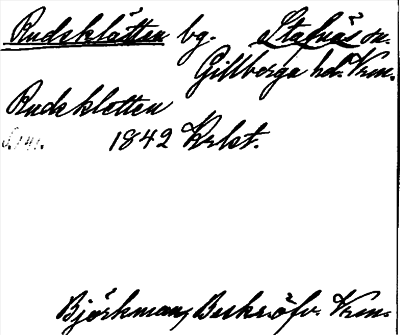 Rudsklätten bg. Stafnäs sn.
Gillberga hd. Vrm.
Rudskletten
1842 Krlst.
Björkman, Beskr. öfv. Vrm.